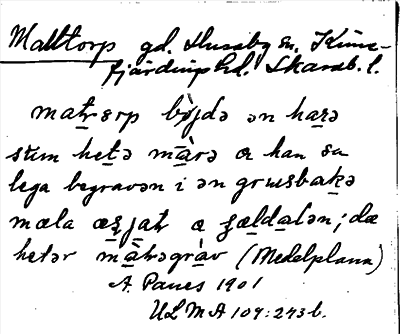 Malltorp gd. Husaby sn. Kinne-
fjärdings hd. Skarab. l.
matrsrp bòjdə ən harə
stɯm hetə màrə ɑ han sa
lega begravən i ən grɯsbakə
mæla æsjat ɑ sældalən; dæ
hetər màrəgràv (Medelplana)
A. Panes 1901
ULMA 109:243b.